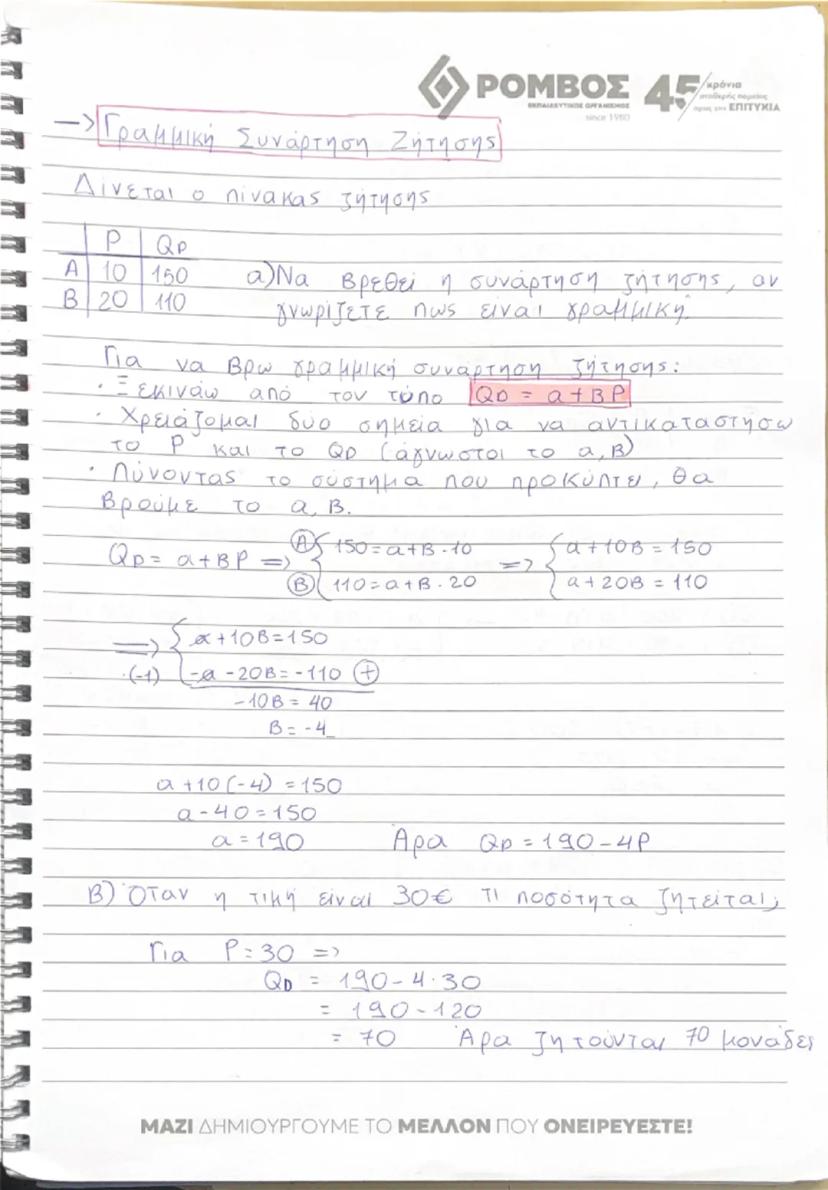 ΡΟΜΒΟΣ 45 χρόνια
ΕΚΠΑΙΔΕΥΤΙΚΟΣ ΟΡΓΑΝΙΣΜΟΣ σταθερής πορείας
since 1980 προς την ΕΠΙΤΥΧΙΑ
→ Γραμμική Συνάρτηση Ζήτησης
Δίνεται ο πίνακας ζήτησης
P QD
A 10 150 α) Να βρεθεί η συνάρτηση ζήτησης, αν
B 20 110 γνωρίζετε πως είναι γραμμική.
Για να βρω γραμμική συνάρτηση ζήτησης:
· Ξεκινάω από τον τύπο QD = α + βP
· Χρειάζομαι δύο σημεία για να αντικαταστήσω
το P και το QD (άγνωστοι το α, β)
· Λύνοντας το σύστημα που προκύπτει, θα
βρούμε το α, β.
QD = α + βP => (A) { 150 = α + β · 10 => { α + 10β = 150
(B) { 110 = α + β · 20 { α + 20β = 110
=> { α + 10β = 150
·(-1) { -α - 20β = -110 (+)
-10β = 40
β = -4
α + 10(-4) = 150
α - 40 = 150
α = 190 Άρα QD = 190 - 4P
β) Όταν η τιμή είναι 30€ τι ποσότητα ζητείται;
Για P = 30 =>
QD = 190 - 4·30
= 190 - 120
= 70 Άρα ζητούνται 70 μονάδες
ΜΑΖΙ ΔΗΜΙΟΥΡΓΟΥΜΕ ΤΟ ΜΕΛΛΟΝ ΠΟΥ ΟΝΕΙΡΕΥΕΣΤΕ!